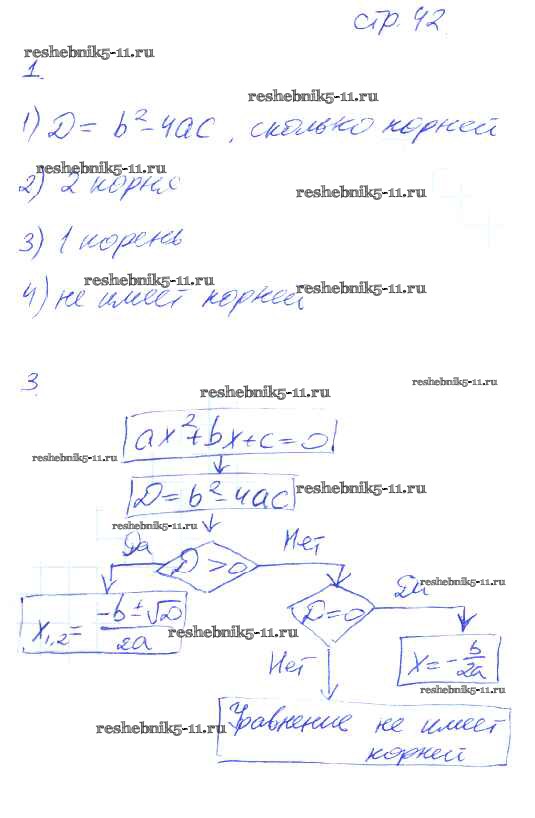 стр. 42
reshebnik5-11.ru
1.
reshebnik5-11.ru
1) D = b² - 4ac, сколько корней
reshebnik5-11.ru
2) 2 корня
reshebnik5-11.ru
3) 1 корень
reshebnik5-11.ru
4) не имеет корней
reshebnik5-11.ru
3.
reshebnik5-11.ru
reshebnik5-11.ru
ax² + bx + c = 0
reshebnik5-11.ru
D = b² - 4ac
reshebnik5-11.ru
reshebnik5-11.ru
Да
D > 0
Нет
reshebnik5-11.ru
x₁,₂ = (-b ± √D) / 2a
D = 0
Да
reshebnik5-11.ru
x = - b/2a
Нет
reshebnik5-11.ru
Уравнение не имеет
reshebnik5-11.ru
корней